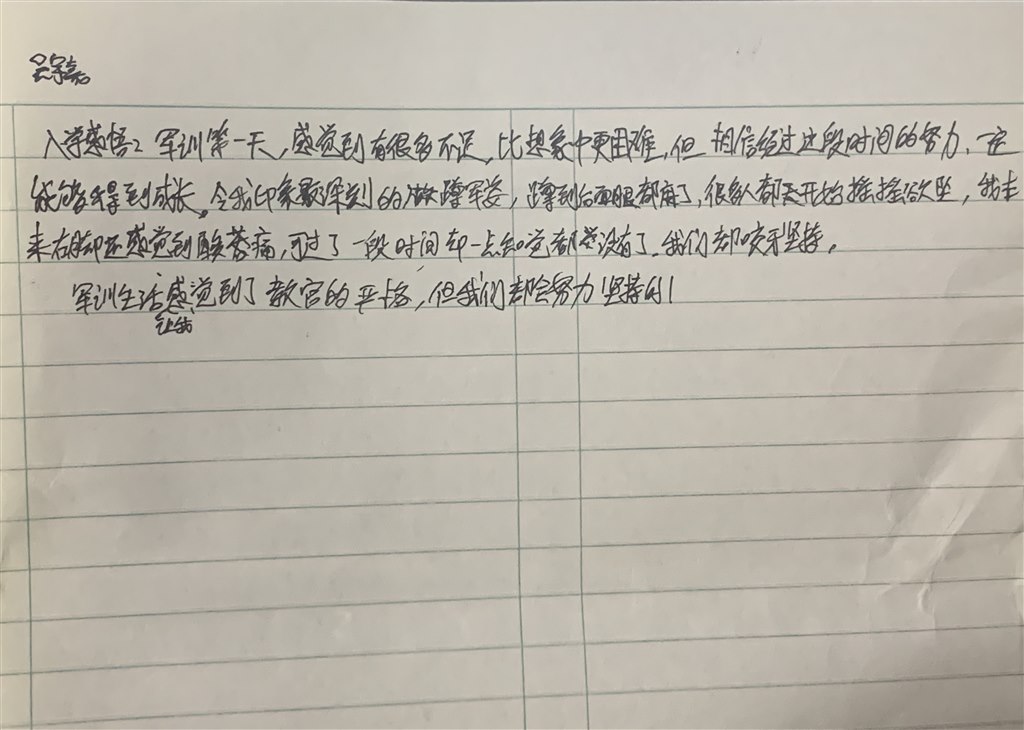 吴宇嘉
入学感悟：军训第一天，感觉到有很多不足，比想象中更困难，但相信经过这段时间的努力，一定
能够得到成长。令我印象最深刻的做蹲军姿，蹲到后面腿都麻了，很多人都开始摇摇欲坠，我本
来右脚还感觉到酸萎痛，可过了一段时间却一点知觉都没有了。我们却咬牙坚持。
军训生活让我感觉到了教官的严格，但我们都会努力坚持的！